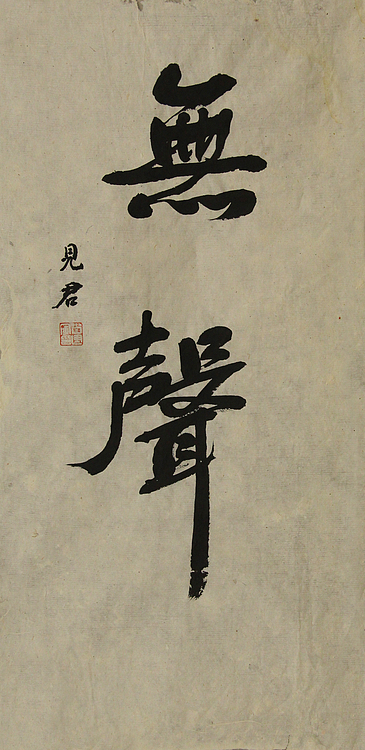 無聲
見君